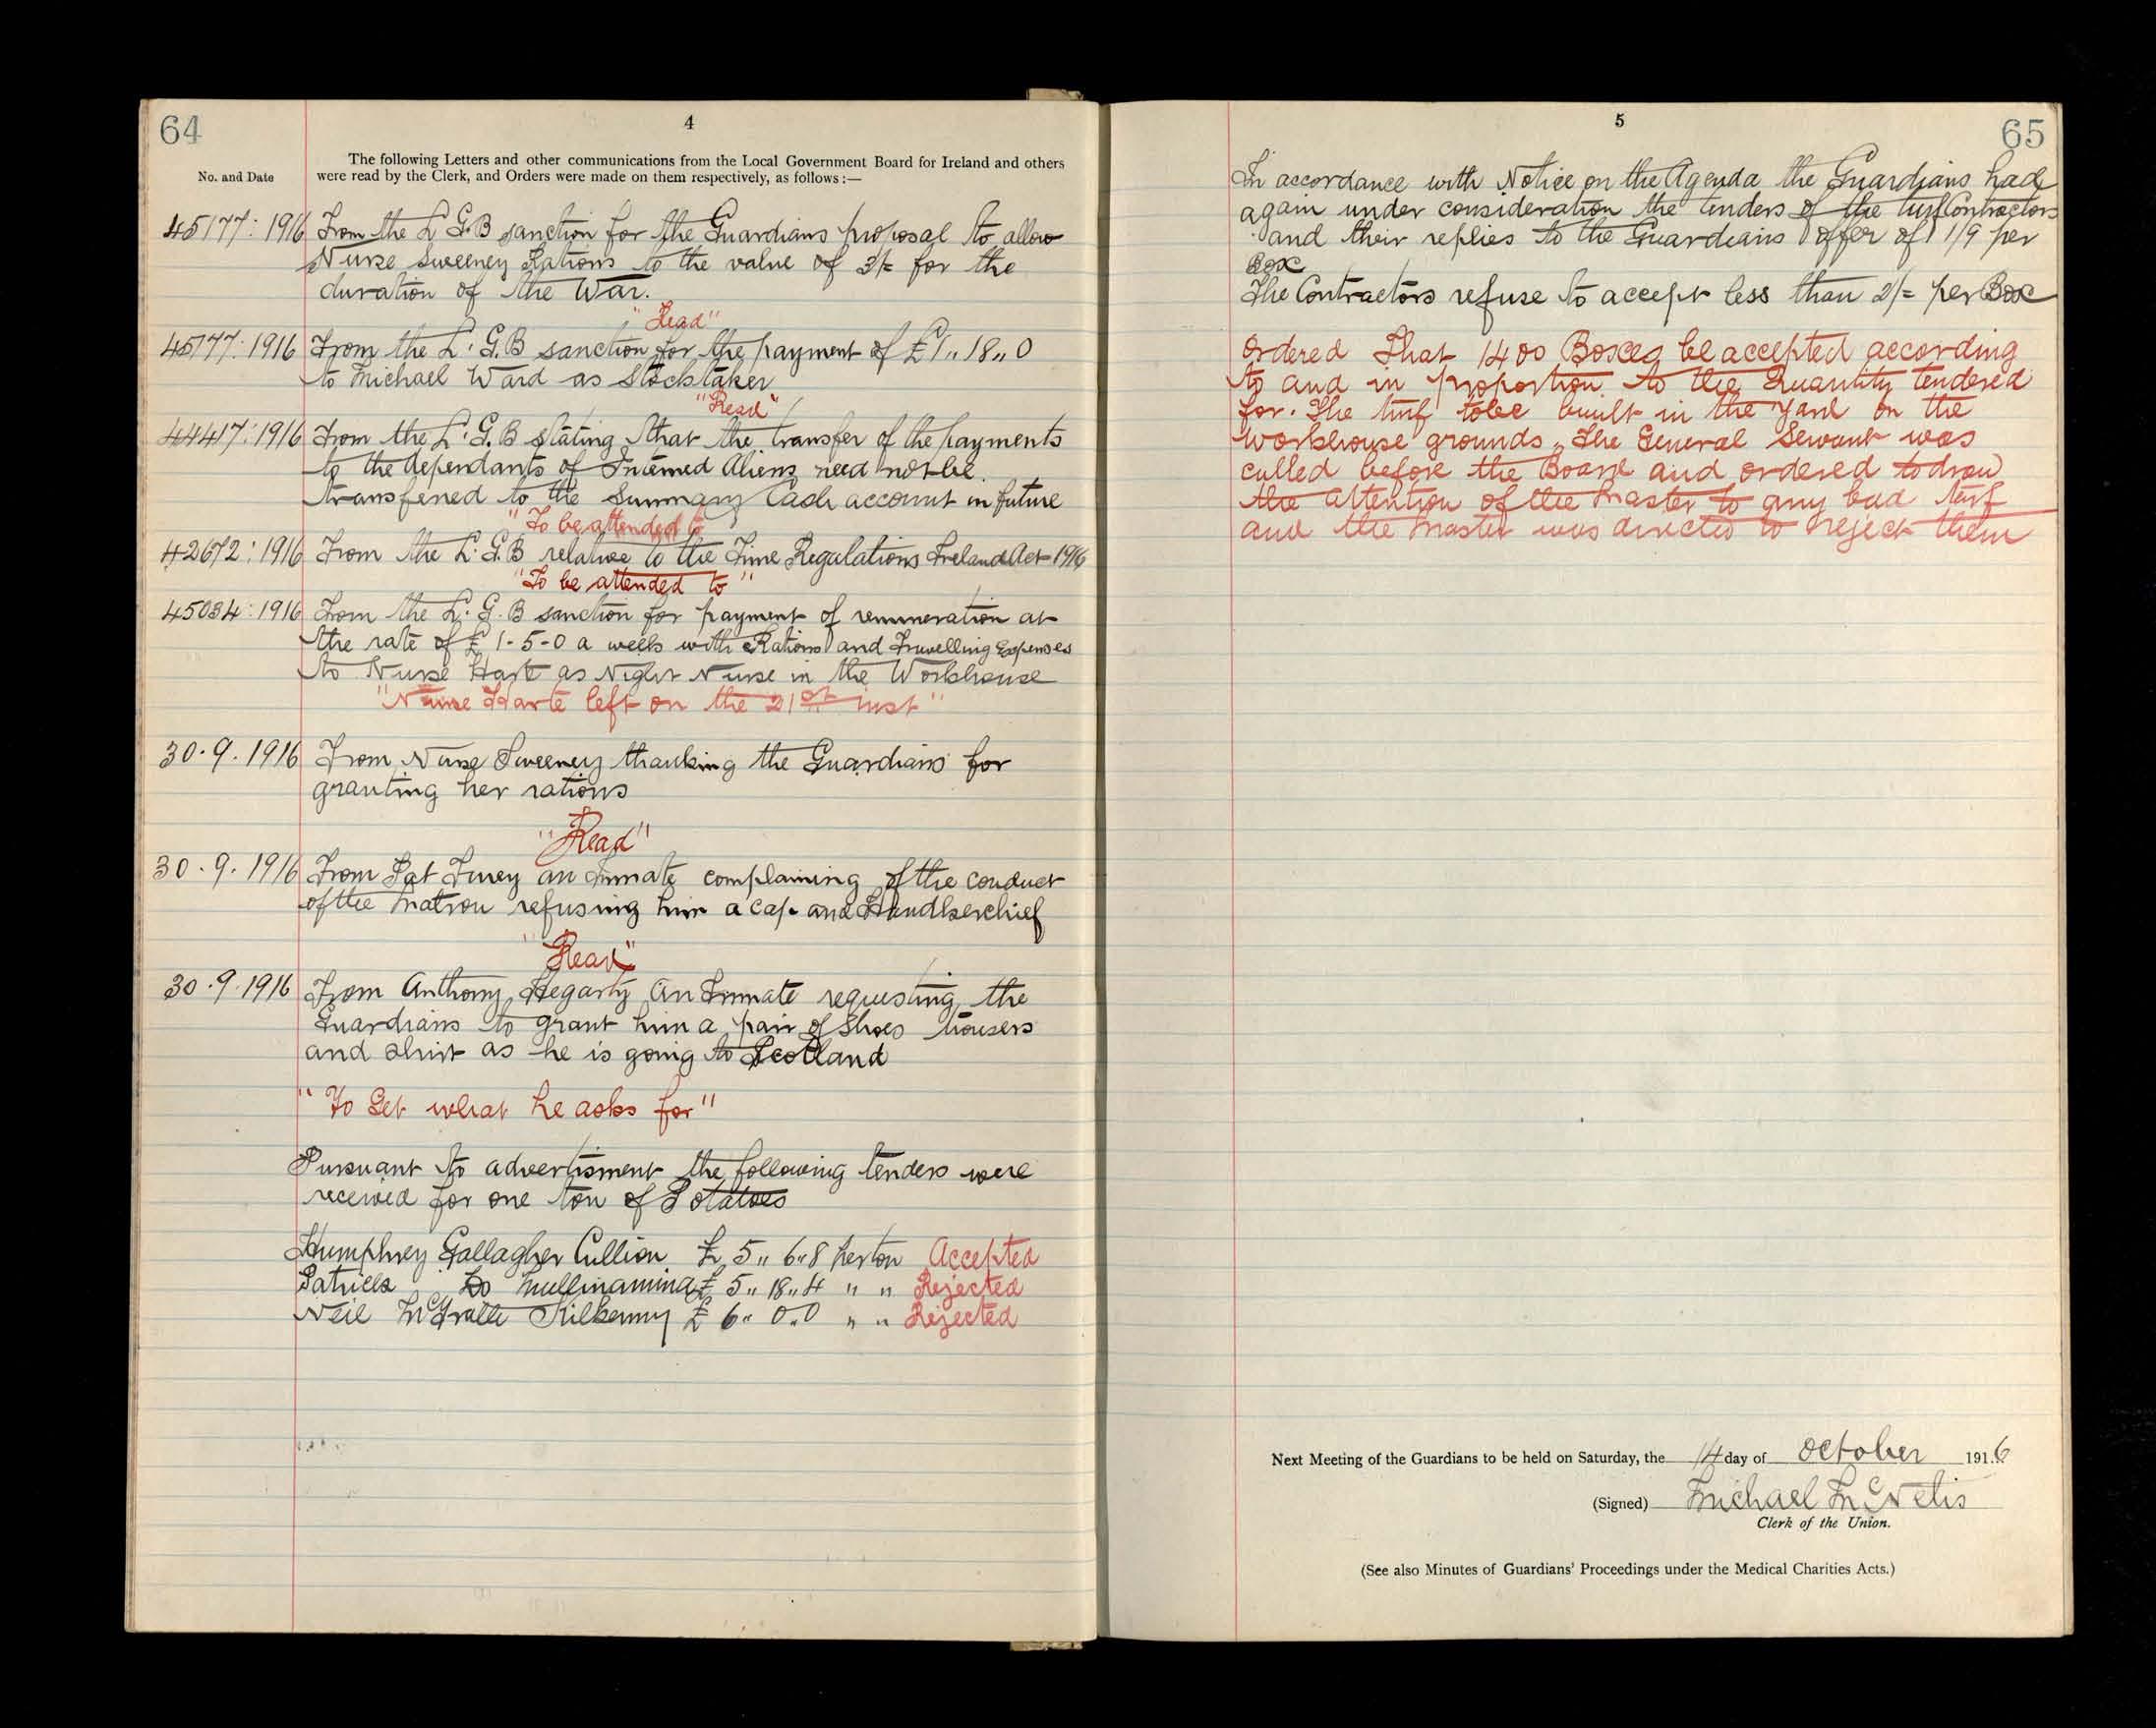 64
4
No. and Date
The following Letters and other communications from the Local Government Board for Ireland and others
were read by the Clerk, and Orders were made on them respectively, as follows:—
45177: 1916 From the L G.B sanction for the Guardians proposal to allow
Nurse Sweeney Rations to the value of 3/= for the
duration of the War.
"Read"
45177: 1916 From the L. G.B sanction for the payment of £1„ 18„ 0
to Michael Ward as Stocktaker
"Read"
44417: 1916 From the L. G. B stating that the transfer of the payments
to the dependants of Interned Aliens need not be
transferred to the Summary Cash account in future
"To be attended to
42672: 1916 From the L. G.B relative to the Time Regulations Ireland Act 1916
"To be attended to"
45034: 1916 From the L. G. B sanction for payment of remuneration at
the rate of £1-5-0 a week with Rations and Travelling Expenses
to Nurse Hart as Night Nurse in the Workhouse
"Nurse Harte left on the 21st inst"
30.9.1916 From Nurse Sweeney thanking the Guardians for
granting her rations
"Read"
30.9.1916 From Pat Furey an inmate complaining of the conduct
of the Matron refusing him a cap and Handkerchief
"Read"
30.9.1916 From Anthony Hegarty an Inmate requesting the
Guardians to grant him a pair of Shoes trousers
and shirt as he is going to Scotland
"To Get what he asks for"
Pursuant to advertisment the following tenders were
received for one ton of Potatoes
Humphrey Gallagher Cullion £ 5„ 6„8 per ton Accepted
Patrick Do Mullinamina £ 5„ 18„4 „ „ Rejected
Neil McGrath Kilkenny £ 6„ 0„0 „ „ Rejected
5
65
In accordance with Notice on the Agenda the Guardians had
again under consideration the tenders of the turf Contractors
and their replies to the Guardians offer of 1/9 per
Box
The Contractors refuse to accept less than 2/= per Box
Ordered That 1400 Boxes be accepted according
to and in proportion to the Quantity tendered
for. The turf to be built in the yard on the
Workhouse grounds. The General Servant was
called before the Board and ordered to draw
the attention of the Master to any bad turf
and the Master was directed to reject them
Next Meeting of the Guardians to be held on Saturday, the 14 day of October 1916
(Signed) Michael McNelis
Clerk of the Union.
(See also Minutes of Guardians' Proceedings under the Medical Charities Acts.)